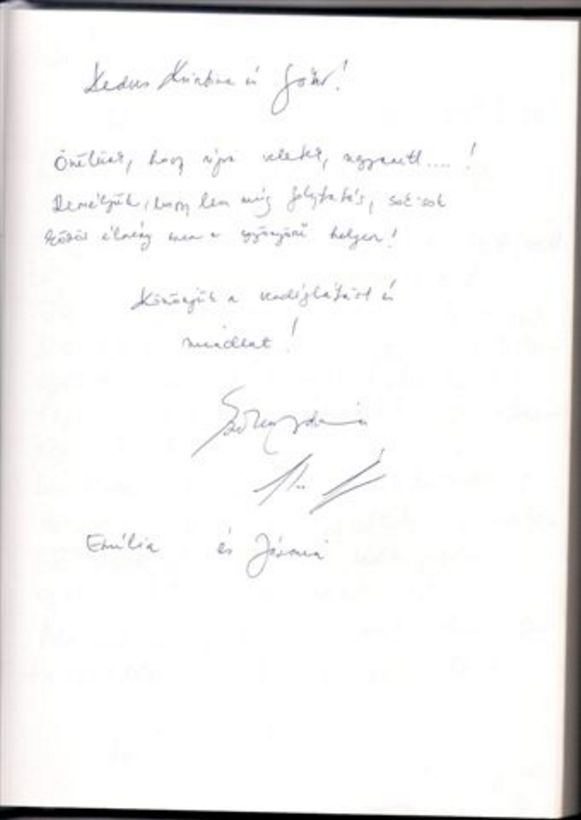 Kedves Krisztina és Gábor!
Örülünk, hogy újra veletek, ugyanitt.... !
Reméljük, hogy lesz még folytatás, sok-sok
közös élmény ezen a gyönyörű helyen!
Köszönjük a vendéglátást és
mindent!
Emília és